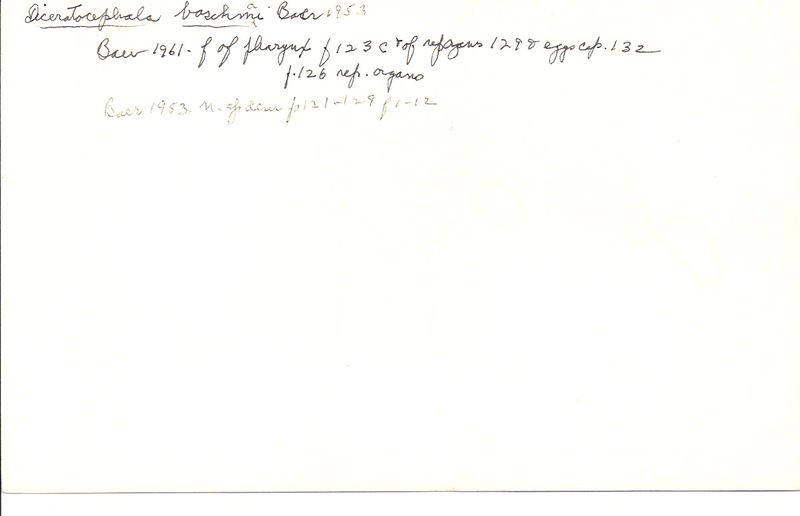 Diceratocephala boschmai Baer 1953
Baer 1961 - f of pharynx f 123 c & of rep organs 129 & eggs cap. 132
p. 126 rep. organs
Baer 1953. n. g. p 121-129 f 1-12